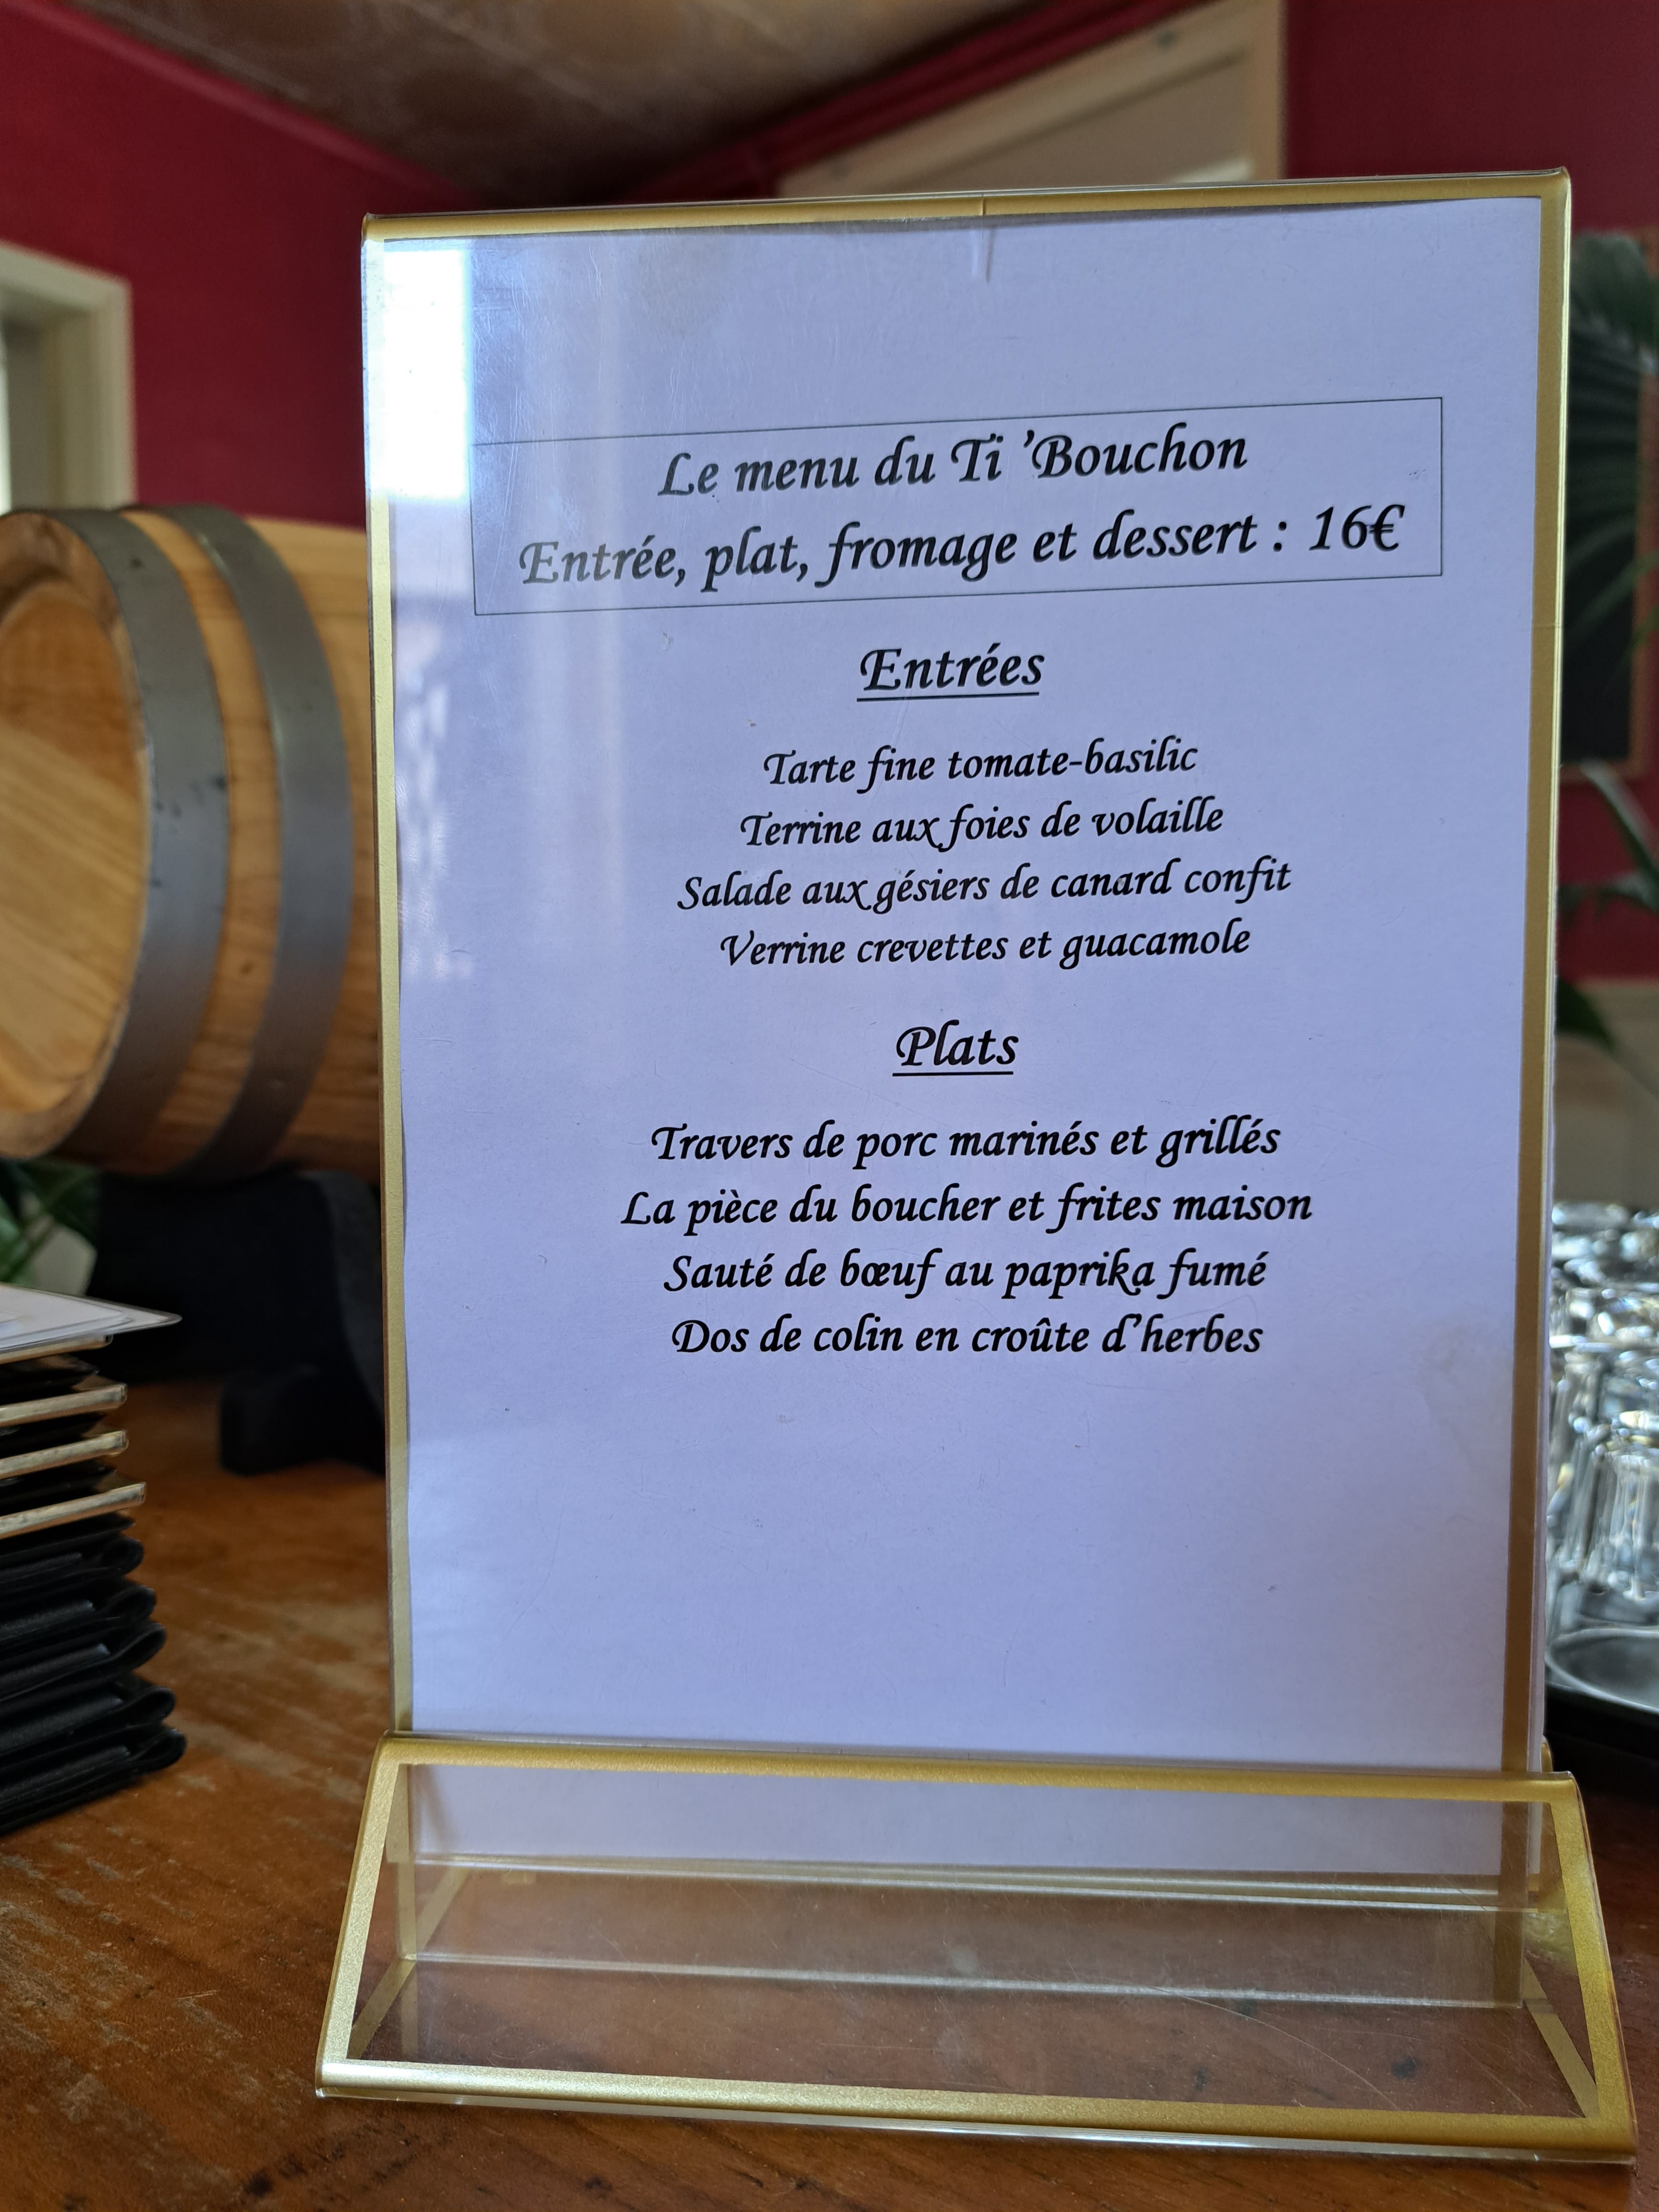 Le menu du Ti 'Bouchon
Entrée, plat, fromage et dessert : 16€
Entrées
Tarte fine tomate-basilic
Terrine aux foies de volaille
Salade aux gésiers de canard confit
Verrine crevettes et guacamole
Plats
Travers de porc marinés et grillés
La pièce du boucher et frites maison
Sauté de bœuf au paprika fumé
Dos de colin en croûte d'herbes